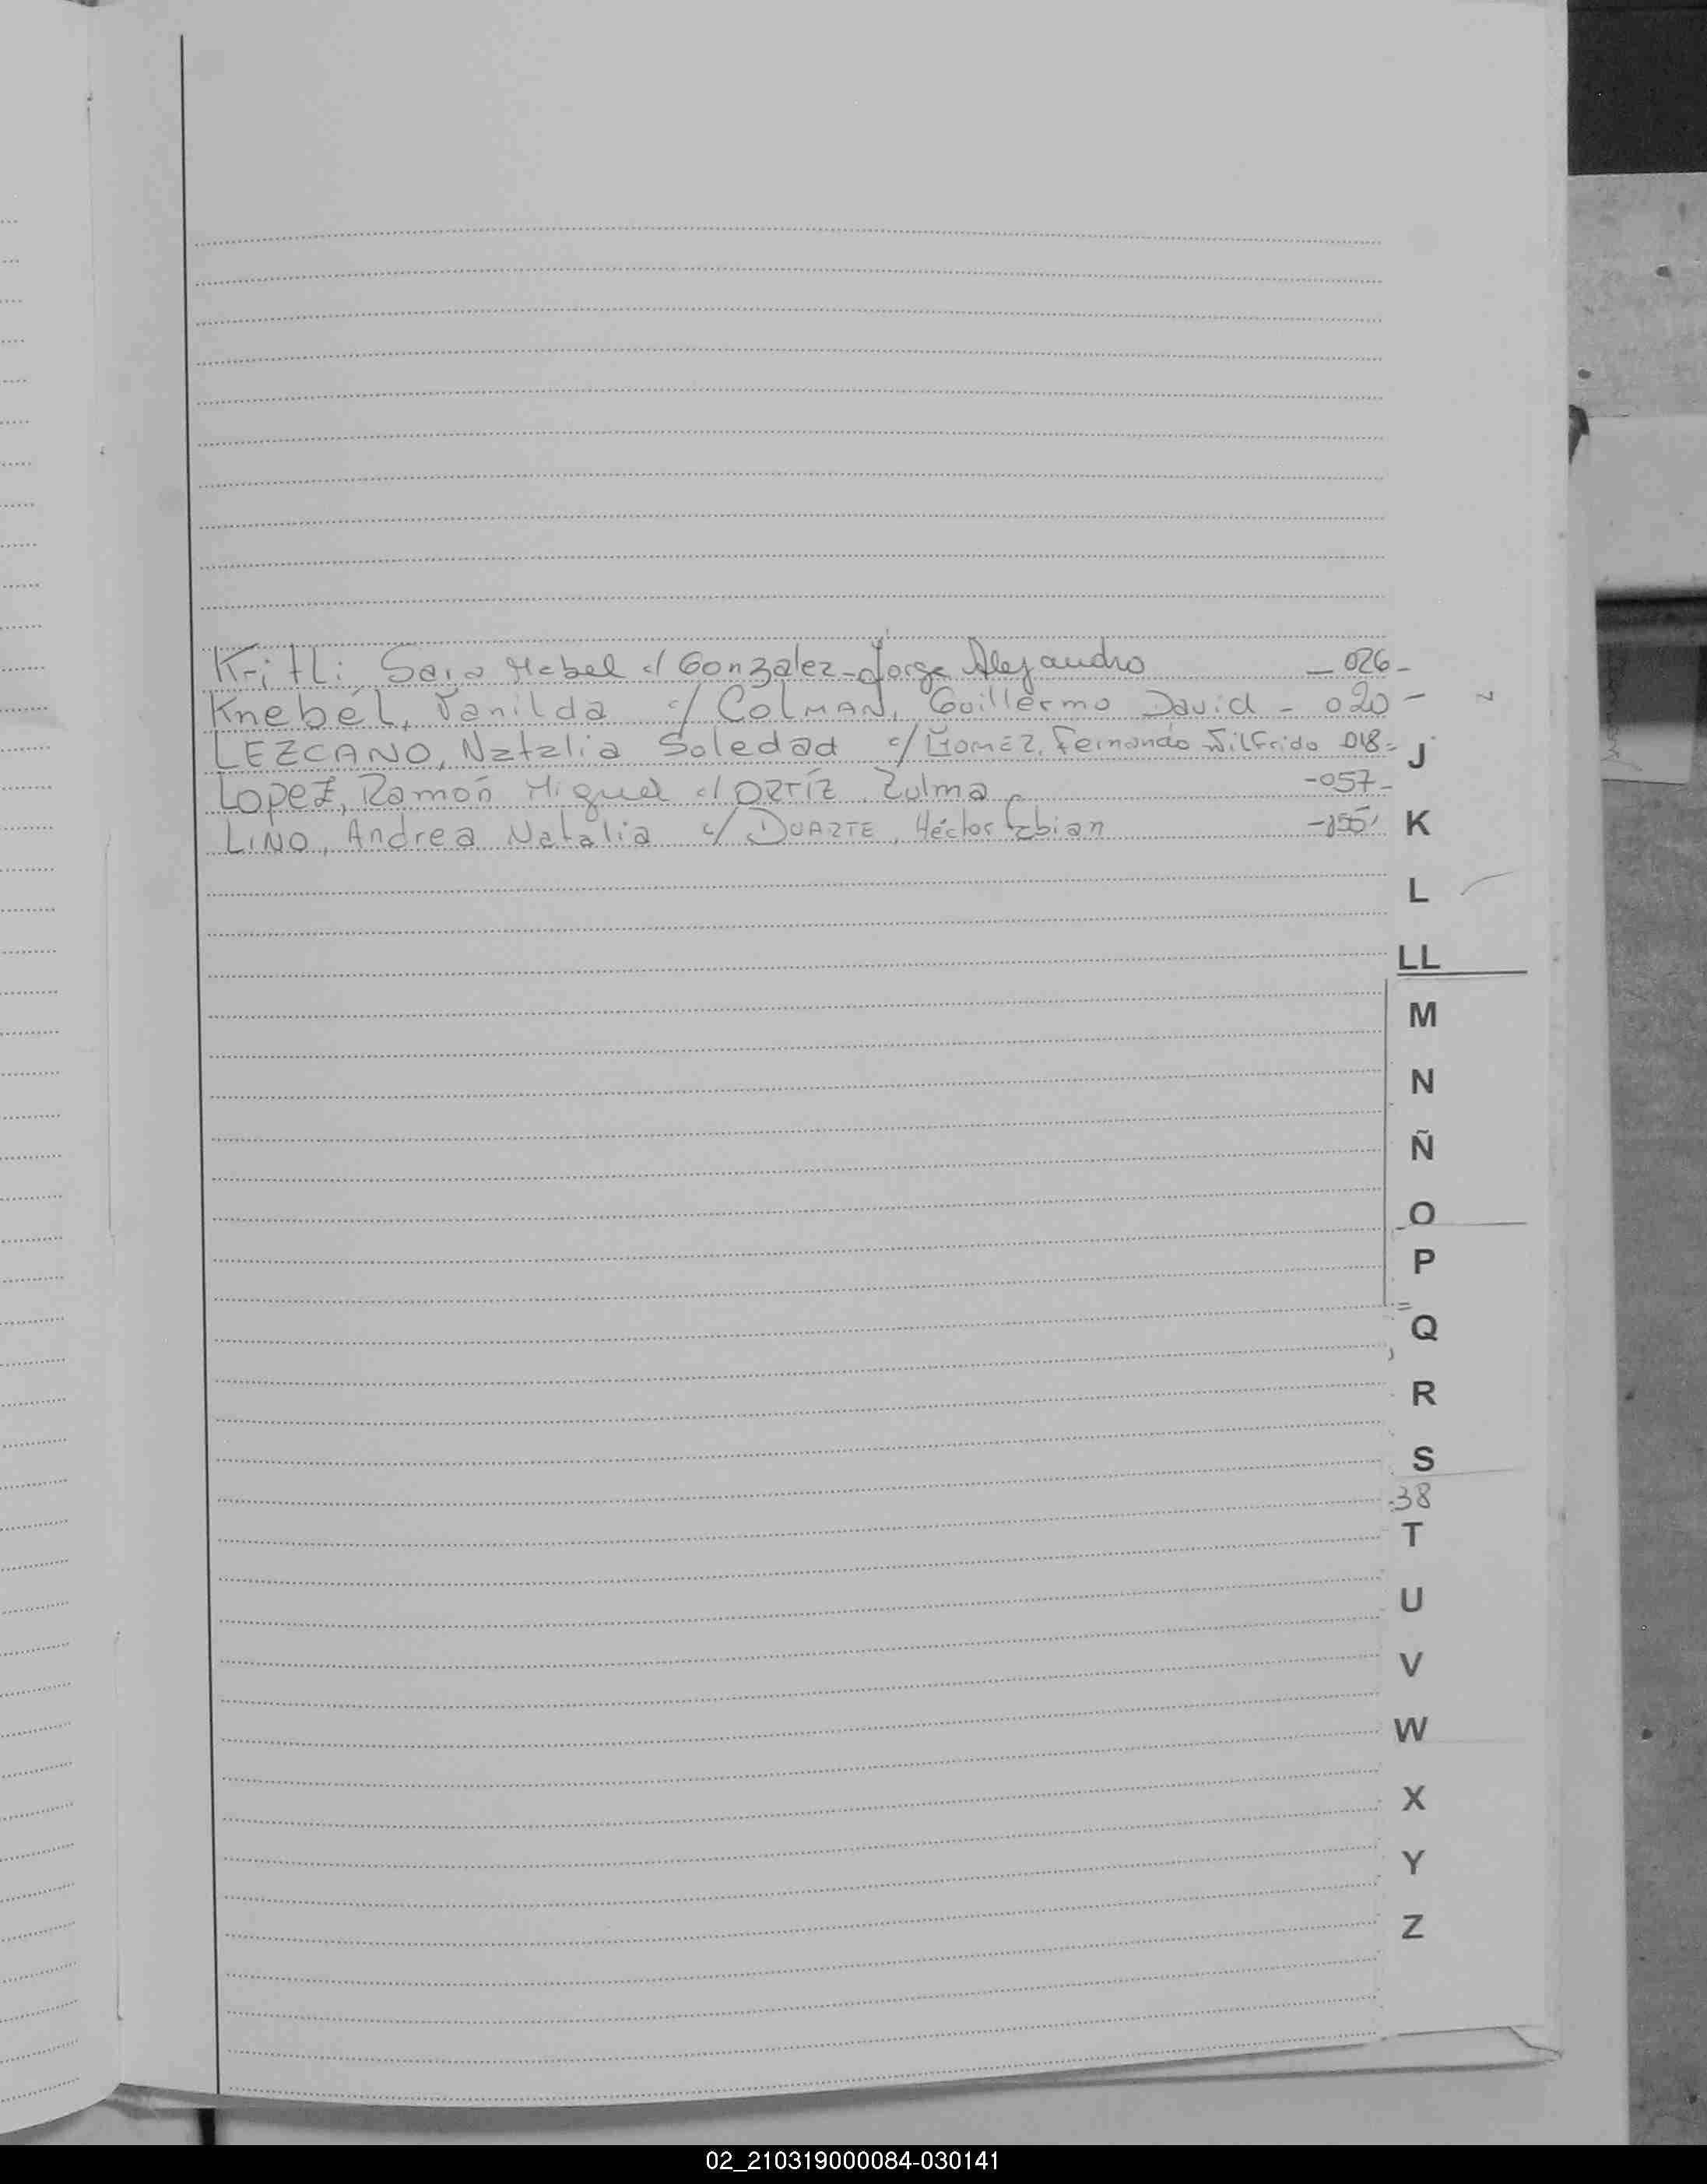 Kritli Sara Mabel c/ Gonzalez Jorge Alejandro — 026 -
Knebel, Vanilda c/ COLMAN, Guillermo David - 020 -
LEZCANO, Natalia Soledad c/ GOMEZ, Fernando Wilfrido 018 -
Lopez, Ramón Miguel c/ ORTÍZ Zulma - 057 -
LINO, Andrea Natalia c/ DUARTE, Héctor Fabian
J
K
L
LL
M
N
Ñ
O
P
Q
R
S
38
T
U
V
W
X
Y
Z
02_210319000084-030141